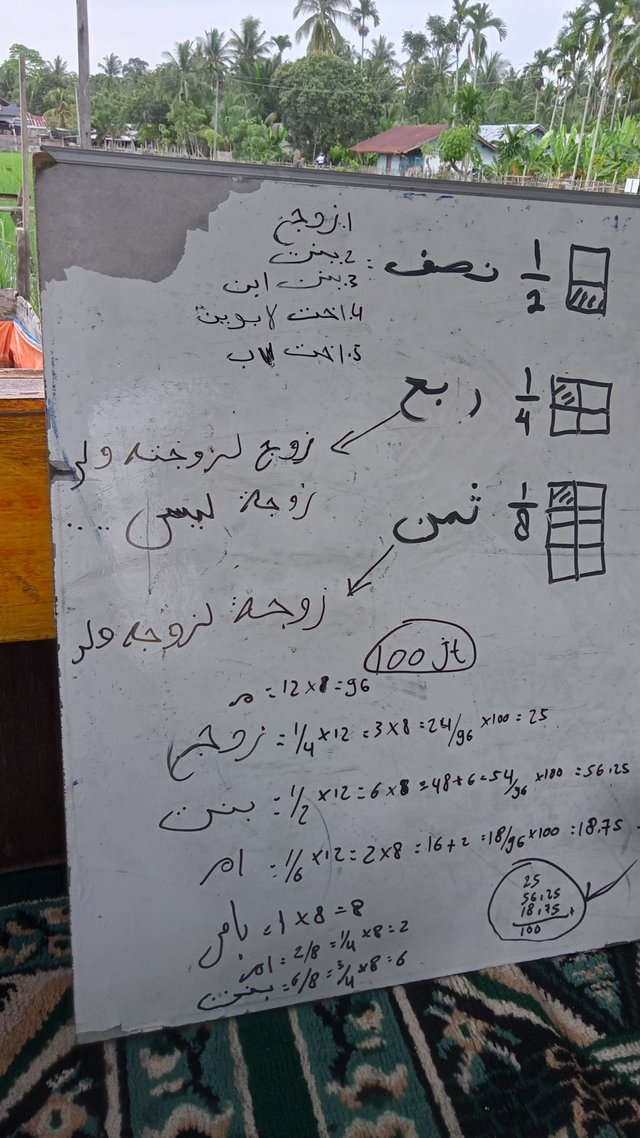 1. زوج
2. بنت
3. بنت ابن
4. اخت لابوين
5. اخت لاب
نصف : 1/2
ربع 1/4
زوج لزوجته ولد
زوجة ليس ....
ثمن 1/8
زوجة لزوجه ولد
100 jt
م = 12 × 8 = 96
زوج = 1/4 × 12 = 3 × 8 = 24/96 × 100 = 25
بنت = 1/2 × 12 = 6 × 8 = 48 + 6 = 54/96 × 100 = 56.25
ام = 1/6 × 12 = 2 × 8 = 16 + 2 = 18/96 × 100 = 18.75
25
56,25
18,75 +
100
= 1 × 8 = 8
ام = 2/8 = 1/4 × 8 = 2
بنت = 6/8 = 3/4 × 8 = 6